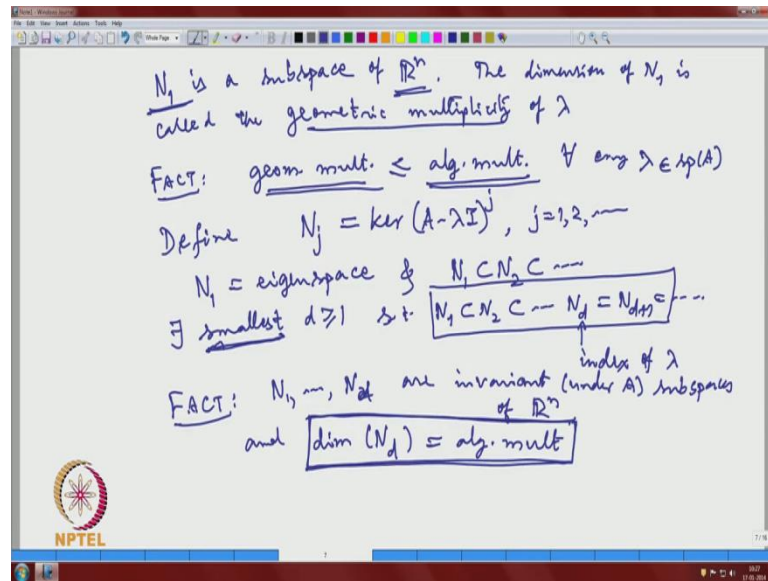 Note1 - Windows Journal
File Edit View Insert Actions Tools Help
Whole Page
N₁ is a subspace of ℝⁿ. The dimension of N₁ is
called the geometric multiplicity of λ
FACT: geom mult. ≤ alg. mult. ∀ any λ ∈ sp(A)
Define N_j = ker (A-λI)^j, j=1,2,---
N₁ = eigenspace & N₁ ⊂ N₂ ⊂ ----
∃ smallest d ≥ 1 s.t. N₁ ⊂ N₂ ⊂ --- N_d = N_{d+1} = ----
index of λ
FACT: N₁, ---, N_d are invariant (under A) subspaces
of ℝⁿ
and dim (N_d) = alg. mult
NPTEL
7
10:27